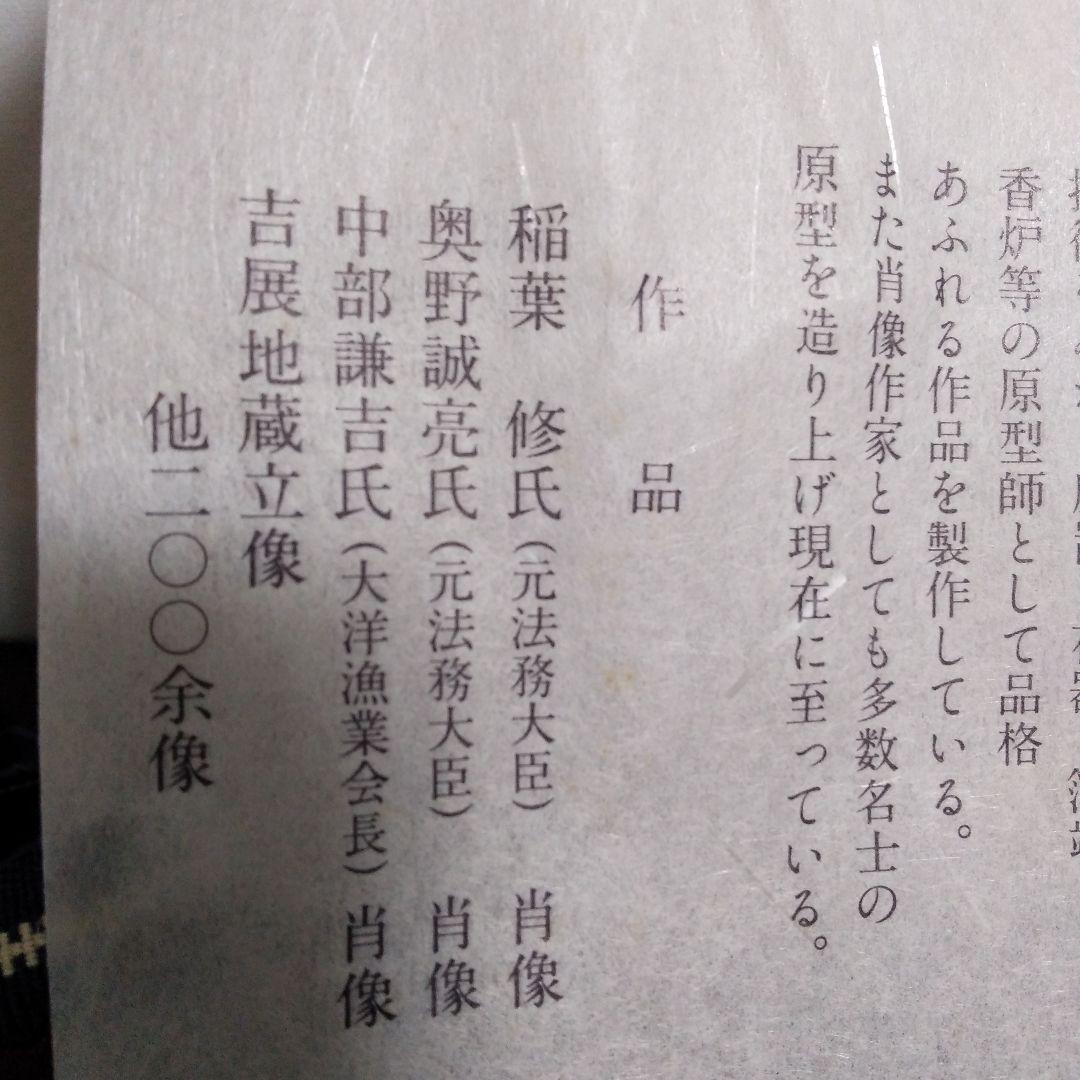 香炉等の原型師として品格
あふれる作品を製作している。
また肖像作家としても多数名士の
原型を造り上げ現在に至っている。
作品
稲葉 修氏(元法務大臣) 肖像
奥野誠亮氏(元法務大臣) 肖像
中部謙吉氏(大洋漁業会長) 肖像
吉展地蔵立像
他二〇〇余像